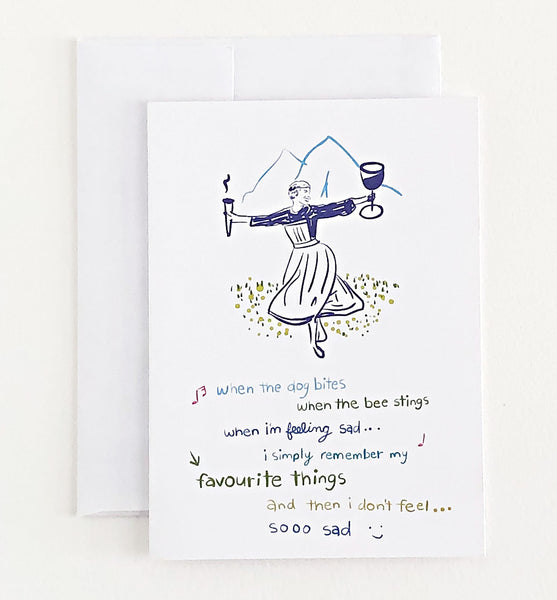 when the dog bites
when the bee stings
when i'm feeling sad...
i simply remember my
favourite things
and then i don't feel...
sooo sad